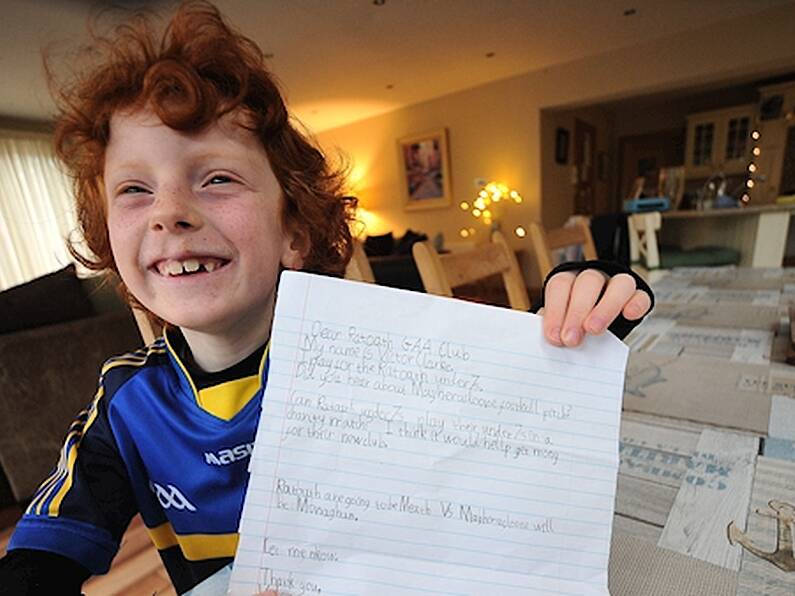 Dear Ratoath GAA Club
My name is Victor Clarke.
I play for the Ratoath under 7s.
Did you hear about Magheracloone football pitch?
Can Ratoath under 7s play their under 7s in a
charity match? I think it would help get mony
for their new club.
Ratoath are going to be Meath Vs Magheracloone will
be Monaghan.
Let me know.
Thank you,